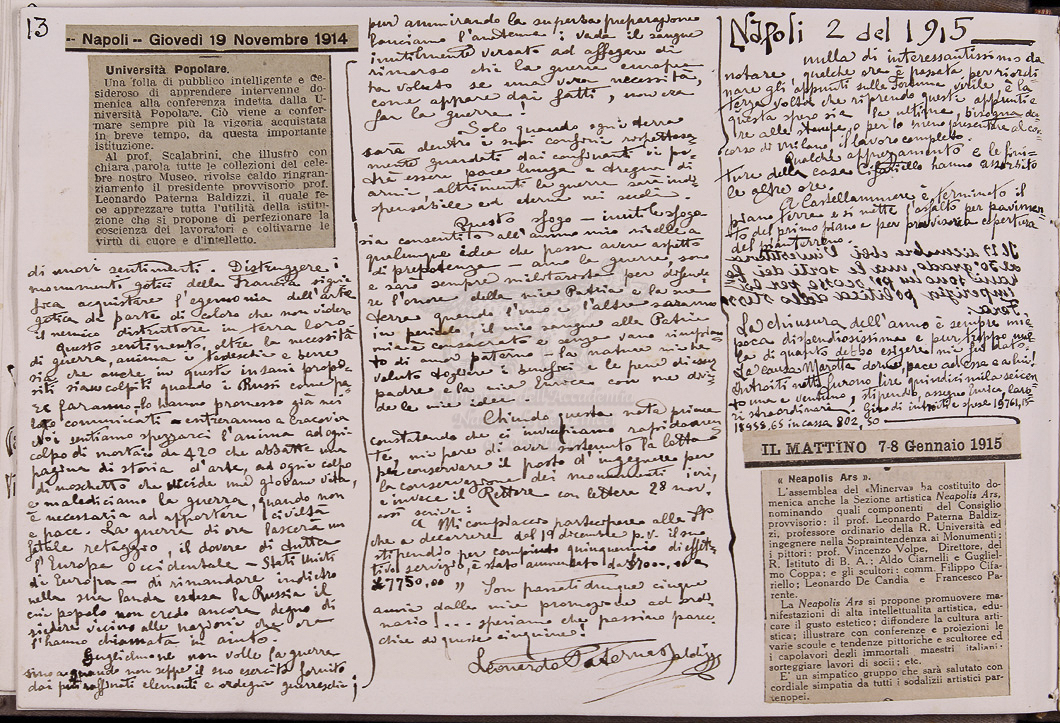 13
Napoli -- Giovedì 19 Novembre 1914
Università Popolare.
Una folla di pubblico intelligente e de-
sideroso di apprendere intervenne do-
menica alla conferenza indetta dalla U-
niversità Popolare. Ciò viene a confer-
mare sempre più la vigoria acquistata
in breve tempo, da questa importante
istituzione.
Al prof. Scalabrini, che illustrò con
chiara parola tutte le collezioni del cele-
bre nostro Museo, rivolse caldo ringran-
ziamento il presidente provvisorio prof.
Leonardo Paterna Baldizzi, il quale fe-
ce apprezzare tutta l'utilità della istitu-
zione che si propone di perfezionare la
coscienza del lavoratori e coltivarne le
virtù di cuore e d'intelletto.
di umori sentimenti. Distruggere i
monumenti gotici della Francia signi-
fica acquistare l'egemonia dell'arte
gotica da parte di coloro che non videro
il nemico distruttore in terra loro.
Questo sentimento, oltre la necessità
di guerra, anima i tedeschi e bene
sia che anche in questi insani propo-
siti siano colpiti quando i Russi come pa-
re faranno, lo hanno promesso già nei
loro comunicati - entreranno a Cracovia
Noi sentiamo spezzarci l'anima ad ogni
colpo di mortaio da 420 che abbatte una
pagina di storia d'arte, ad ogni colpo
di moschetto che uccide una giovane vita,
e malediciamo la guerra, quando non
è necessaria ad apportare civiltà
e pace. La guerra di ora lascerà un
fatale retaggio, il dovere di tutta
l'Europa Occidentale - Stati Uniti
di Europa - di rimandare indietro
nella sua landa estesa la Russia il
cui popolo non credo ancora degno di
sedere vicino alle nazioni che ora
l'hanno chiamata in aiuto.
Guglielmone non volle la guerra
sino a quando non seppe il suo esercito fornito
dai più raffinati elementi e ordegni guerreschi;
pur ammirando la superba preparazione
lanciamo l'anatema: vada il sangue
inutilmente versato ad affogare di
rimorso chi la guerra europea
ha voluto se una vera necessità,
come appare dai fatti, non era
far la guerra!
Solo quando ogni terra
sarà dentro i suoi confini rispettosa-
mente guardati dai confinanti si po-
trà essere pace lunga e tregua di
armi altrimenti la guerra sarà indi-
spensabile ed eterna nei secoli.
Questo sfogo - inutile sfogo
sia consentito all'animo mio ribelle a
qualunque idea che possa avere aspetto
di prepotenza - amo la guerra, sono
e sarò sempre militarista per difende-
re l'onore della mia Patria e la mia
terra quando l'uno e l'altra saranno
in pericolo, il mio sangue alla Patria
mia è consacrato e senza vano rimpian-
to di amor paterno - la natura ha
voluto togliere i benefici e le pene di esser
padre e la mia Enrica con me di-
de le mie
Chiudo questa nota prima
constatando che si invecchia rapidamen-
te, mi pare di aver sostenuto la lotta
per conservare il posto d'ingegnere per
la conservazione dei monumenti ieri,
e invece il Rettore con lettera 28 nov.
così scrive:
" Mi compiaccio partecipare alla S.V.
che a decorrere dal 19 dicembre p.v. il suo
stipendio per compiuto quinquennio di effet-
tivo servizio, è stato aumentato da £7000,00 a
£7750,00 " Son passati dunque cinque
anni dalla mia promozione ad ordi-
nario!... speriamo che passino parec-
chie di queste cinquine!
Leonardo Paterna Baldizzi
Napoli 2 del 1915
nulla di interessantissimo da
notare, qualche ora è passata per riordi-
nare gli appunti sulla Fortuna virile, è la
terza volta che riprendo questi appunti e
questa spero sia la ultima, bisogna da-
re alle stampe o per lo meno presentare al con-
corso di Milano il lavoro completo
Qualche appezzamento e le fini-
ture della casa Cifariello hanno assorbito
le altre ore.
A Castellammare è terminato il
piano terra e si mette l'asfalto per pavimen-
to del primo piano e per provvisoria copertura
del pianterreno.
La chiusura dell'anno è sempre un'e-
poca dispendiosissima e pur troppo nul-
la di quanto debbo esigere mi fu dato.
La causa Marotta dorme, pace ad essa e a lui!
Introiti netti furono lire quindicimilaseicen-
to una e ventuno, stipendio, assegno Enrica lavo-
ri straordinari. Giro di introiti e spese 19761,15-
18958,65 in cassa 802,50
IL MATTINO 7-8 Gennaio 1915
« Neapolis Ars ».
L'assemblea del «Minerva» ha costituito do-
menica anche la Sezione artistica Neapolis Ars,
nominando quali componenti del Consiglio
provvisorio: il prof. Leonardo Paterna Baldiz-
zi, professore ordinario della R. Università ed
ingegnere nella Sopraintendenza ai Monumenti;
i pittori: prof. Vincenzo Volpe, Direttore, del
R. Istituto di B. A.; Aldo Ciarnelli e Guglìel-
mo Coppa; e gli scultori: comm. Filippo Cifa-
riello; Leonardo De Candia e Francesco Pa-
rente.
La Neapolis Ars si propone promuovere ma-
nifestazioni di alta intellettualità artistica, edu-
care il gusto estetico; diffondere la cultura arti-
stica; illustrare con conferenze e proiezioni le
varie scuole e tendenze pittoriche e scultoree ed
i capolavori degli immortali maestri italiani;
sorteggiare lavori di socii; etc.
E' un simpatico gruppo che sarà salutato con
cordiale simpatia da tutti i sodalizi artistici par-
tenopei.